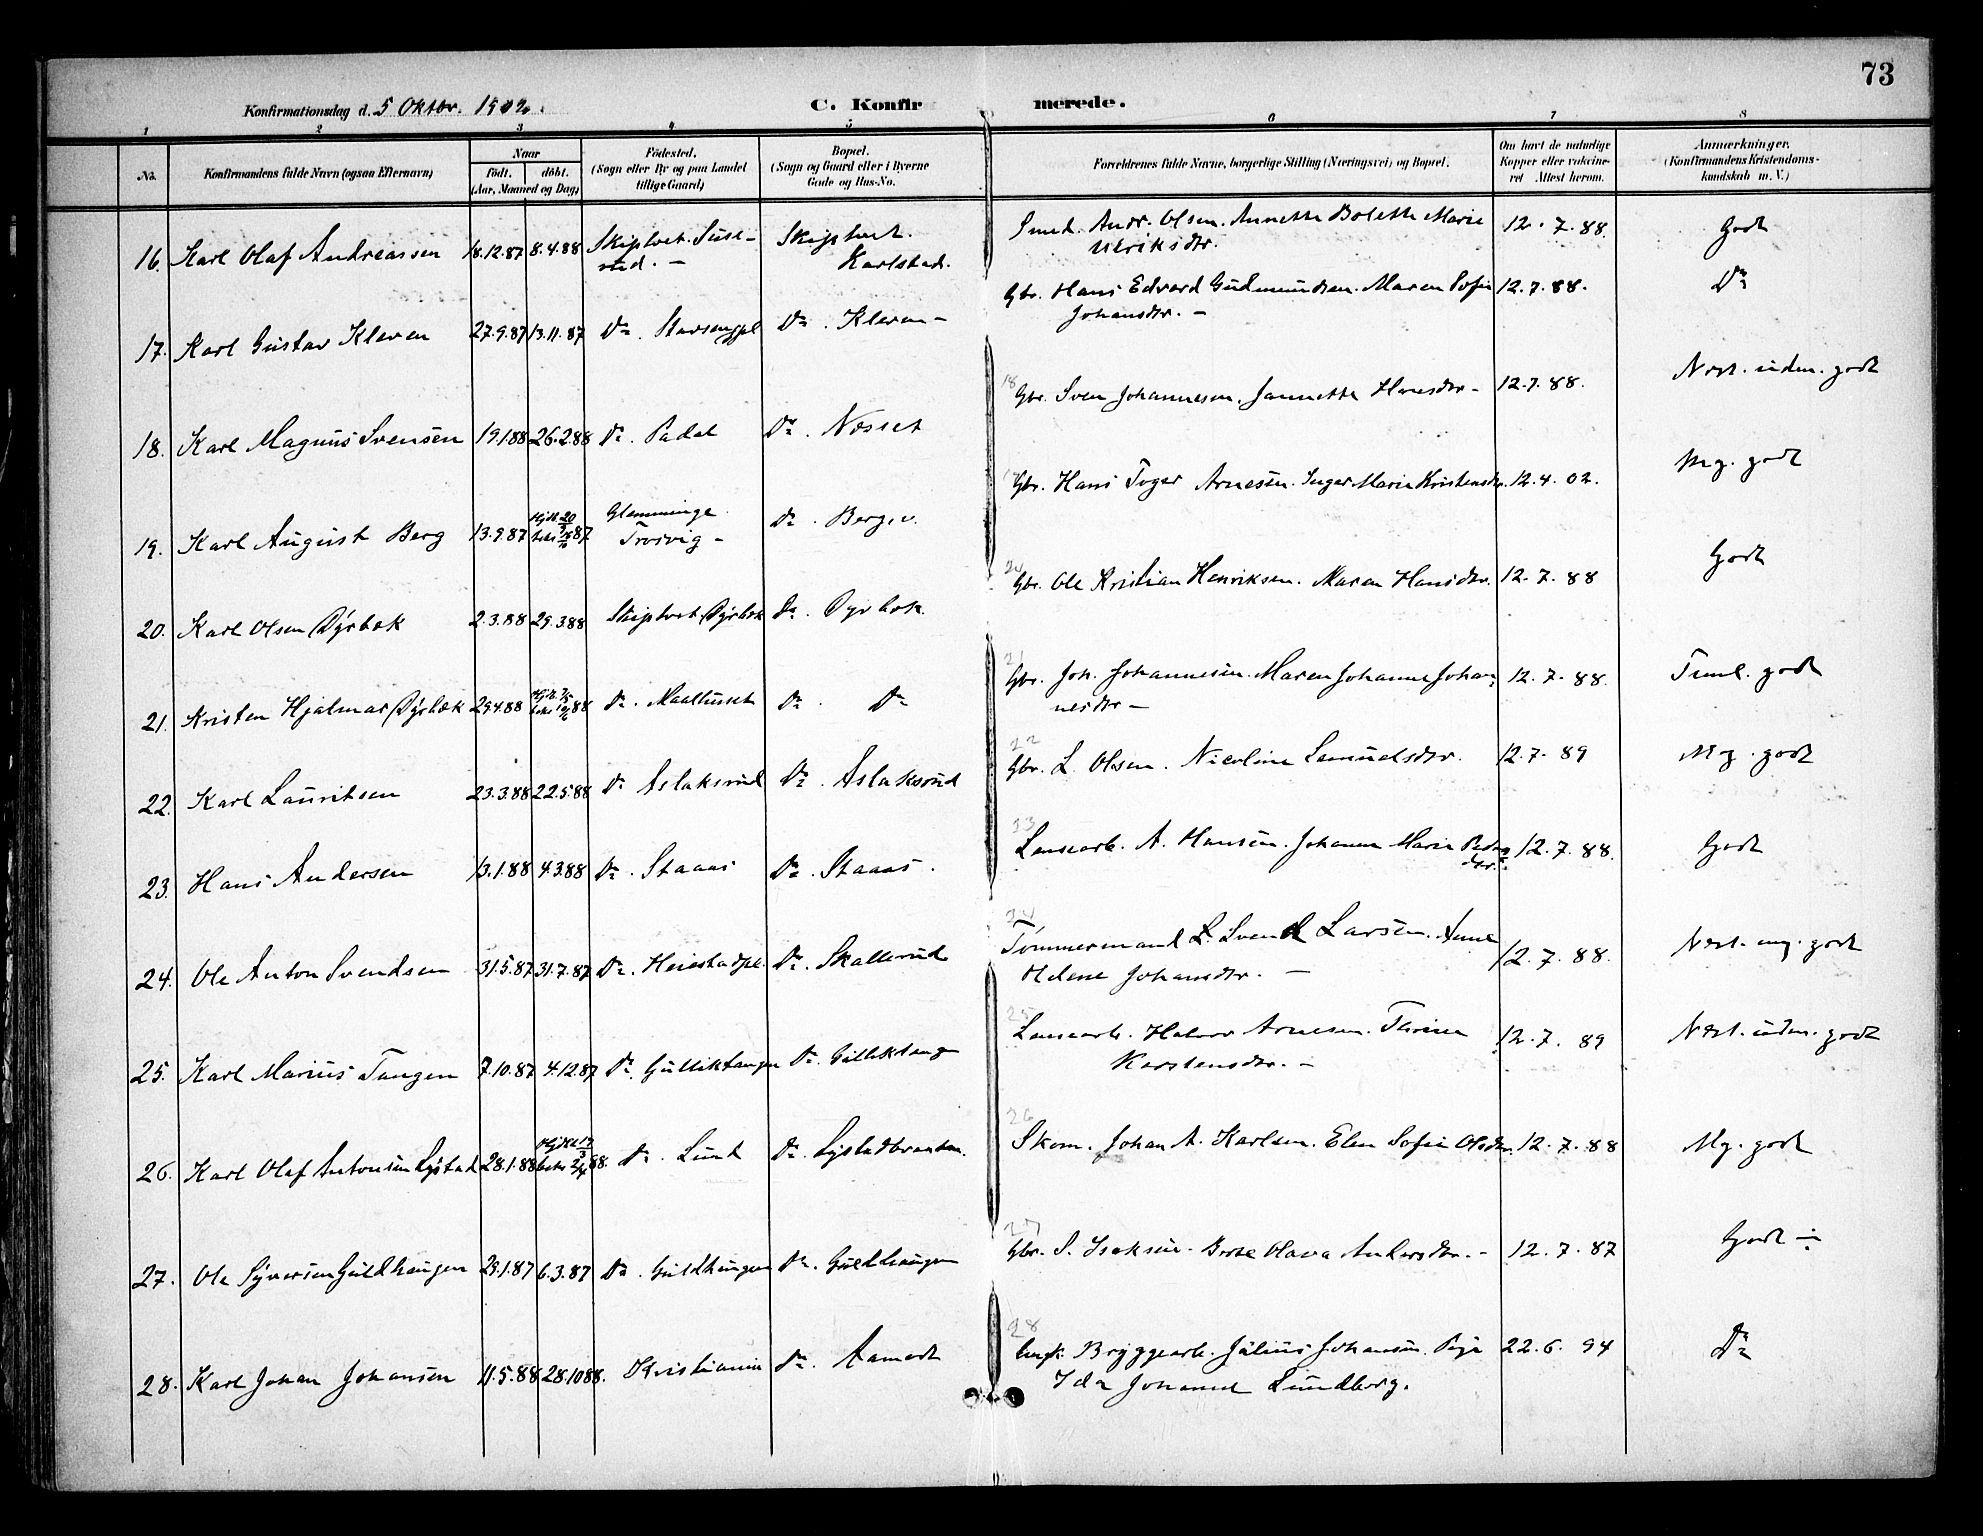 73
Konfirmationsdag d. 5 Oktbr. 1902.
C. Konfirmerede.
1 2 3 4 5 6 7 8
No.
Konfirmandens fulde Navn (ogsaa Efternavn)
Naar
födt. döbt.
(Aar, Maaned og Dag)
Födested.
(Sogn eller By og paa Landet
tillige Gaard)
Bopæl.
(Sogn og Gaard eller i Byerne
Gade og Hus-No.
Forældrenes fulde Navne, borgerlige Stilling (Næringsvei) og Bopæl.
Om havt de naturlige
Kopper eller vaccine-
ret Attest herom.
Anmærkninger.
(Konfirmandens Kristendoms-
kundskab m. V.)
16. Karl Olaf Andreassen 18.12.87 8.4.88 Skiptvet. Suse- Skiptvet. Smed. Andr. Olsen. Annette Bolette Marie 12.7.88. Godt
rud. - Karlstad. Ulriksdtr.
17. Karl Gustav Kleven 27.9.87 13.11.87 Do. Do. Kleven - Gbr. Hans Edvard Gudmundsen. Maren Sofie 12.7.88. Do
Johansdtr. -
18. Karl Magnus Svensen 19.1.88 26.2.88 Do. Do. Nosset 18 Gbr. Sven Johannesen. Jannette Hansdtr - 12.7.88. Nest. uden. godt
19. Karl August Berg 13.9.87 Hjdt. 20/9 87 Glemminge Do. Berg. Gbr. Hans Toger Arnesen. Inger Marie Kristensdtr. 12.4.02. Mg. godt
Trosvig -
20. Karl Olsen Dyrbek 2.3.88 29.3.88 Skiptvet Dyrbek Do. Dyrbek. 20 Gbr. Ole Kristian Henriksen. Maren Hansdtr. 12.7.88 Godt
21. Kristen Hjalmar Dyrbek 29.4.88 Do. Maalhuset Do. Do 21 Gbr. Joh. Johannesen. Maren Johanne Johan- 12.7.88. Teml. godt
nesdtr -
22. Karl Lauritsen 23.3.88 22.5.88 Do Aslaksrud Do. Aslaksrud 22 Gbr. L. Olsen. Nicoline Samuelsdtr. 12.7.89 Mg. godt
23. Hans Andersen 13.1.88 4.3.88 Do. Staaas Do. Staaas. 23 Løsearb. A. Hansen. Johanne Marie Peders- 12.7.88. Godt
dtr.
24. Ole Anton Svendsen 31.5.87 31.7.87 Do. Heiestadpl. Do. Skallerud 24 Tømmermand L. Svend Larsen. Anne 12.7.88. Nest. mg. godt
Helene Johansdtr. -
25. Karl Marius Tangen 7.10.87 4.12.87 Do. Gulliktangen Do. Gulliktang 25 Løsearb. Halvor Arnesen. Thrine 12.7.89 Nest. uden. godt
Karstensdtr. -
26. Karl Olaf Antonsen Lystad 28.1.88 88. Do. Lund Do. Lystadbraaten. 26 Skom. Johan A. Karlsen. Elen Sofie Olsdtr. 12.7.88 Mg. godt
27. Ole Syversen Guldhaugen 29.1.87 6.3.87 Do. Guldhaugen Do. Guldhaugen 27 Gbr. S. Isaksen. Berte Olava Andersdtr. - 12.7.87 Godt ÷
28. Karl Johan Johansen 11.5.88 28.10.88. Kristiania Do. Aamodt 28 Ungk. Bryggearb. Julius Johansen. Pige 22.6.94 Do
Ida Johanne Lundborg.